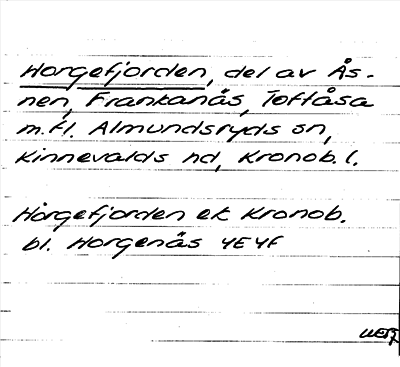 Horgefjorden, del av Ås-
nen, Frankanäs, Toftåsa
m.fl. Almundsryds sn,
Kinnevalds hd, Kronob. l.
Horgefjorden ek Kronob.
bl. Horgenäs 4E4F